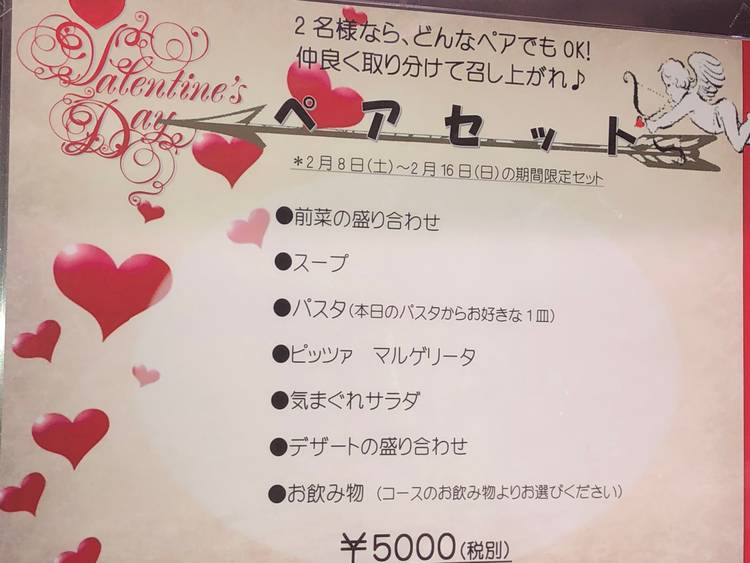 Valentine's
Day
2名様なら、どんなペアでもOK!
仲良く取り分けて召し上がれ♪
ペアセット
*2月8日(土)～2月16日(日)の期間限定セット
●前菜の盛り合わせ
●スープ
●パスタ(本日のパスタからお好きな1皿)
●ピッツァ マルゲリータ
●気まぐれサラダ
●デザートの盛り合わせ
●お飲み物 (コースのお飲み物よりお選びください)
￥5000(税別)